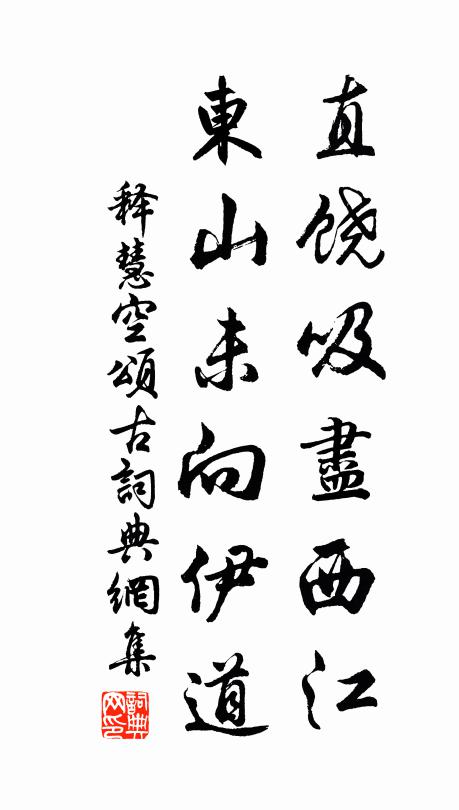 直饶吸盡西江
東山未向伊道
释慧空頌古詞典網集
詞典
网印